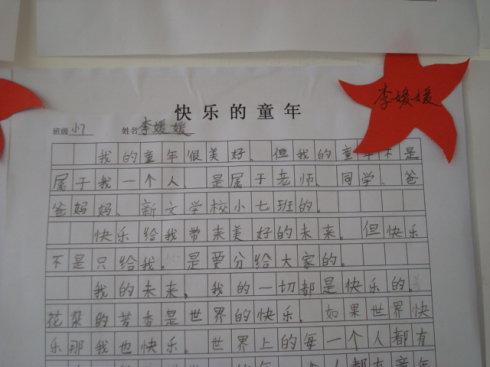 李媛媛
快乐的童年
班级 小7 姓名 李媛媛
我的童年很美好。但我的童年不是
属于我一个人。是属于老师、同学、爸
爸妈妈、新文学校小七班的。
快乐给我带来美好的未来。但快乐
不是只给我。是要分给大家的。
我的未来、我的一切都是快乐的。
花朵的芳香是世界的快乐。如果世界快
乐那我也快乐。世界上的每一个人都有